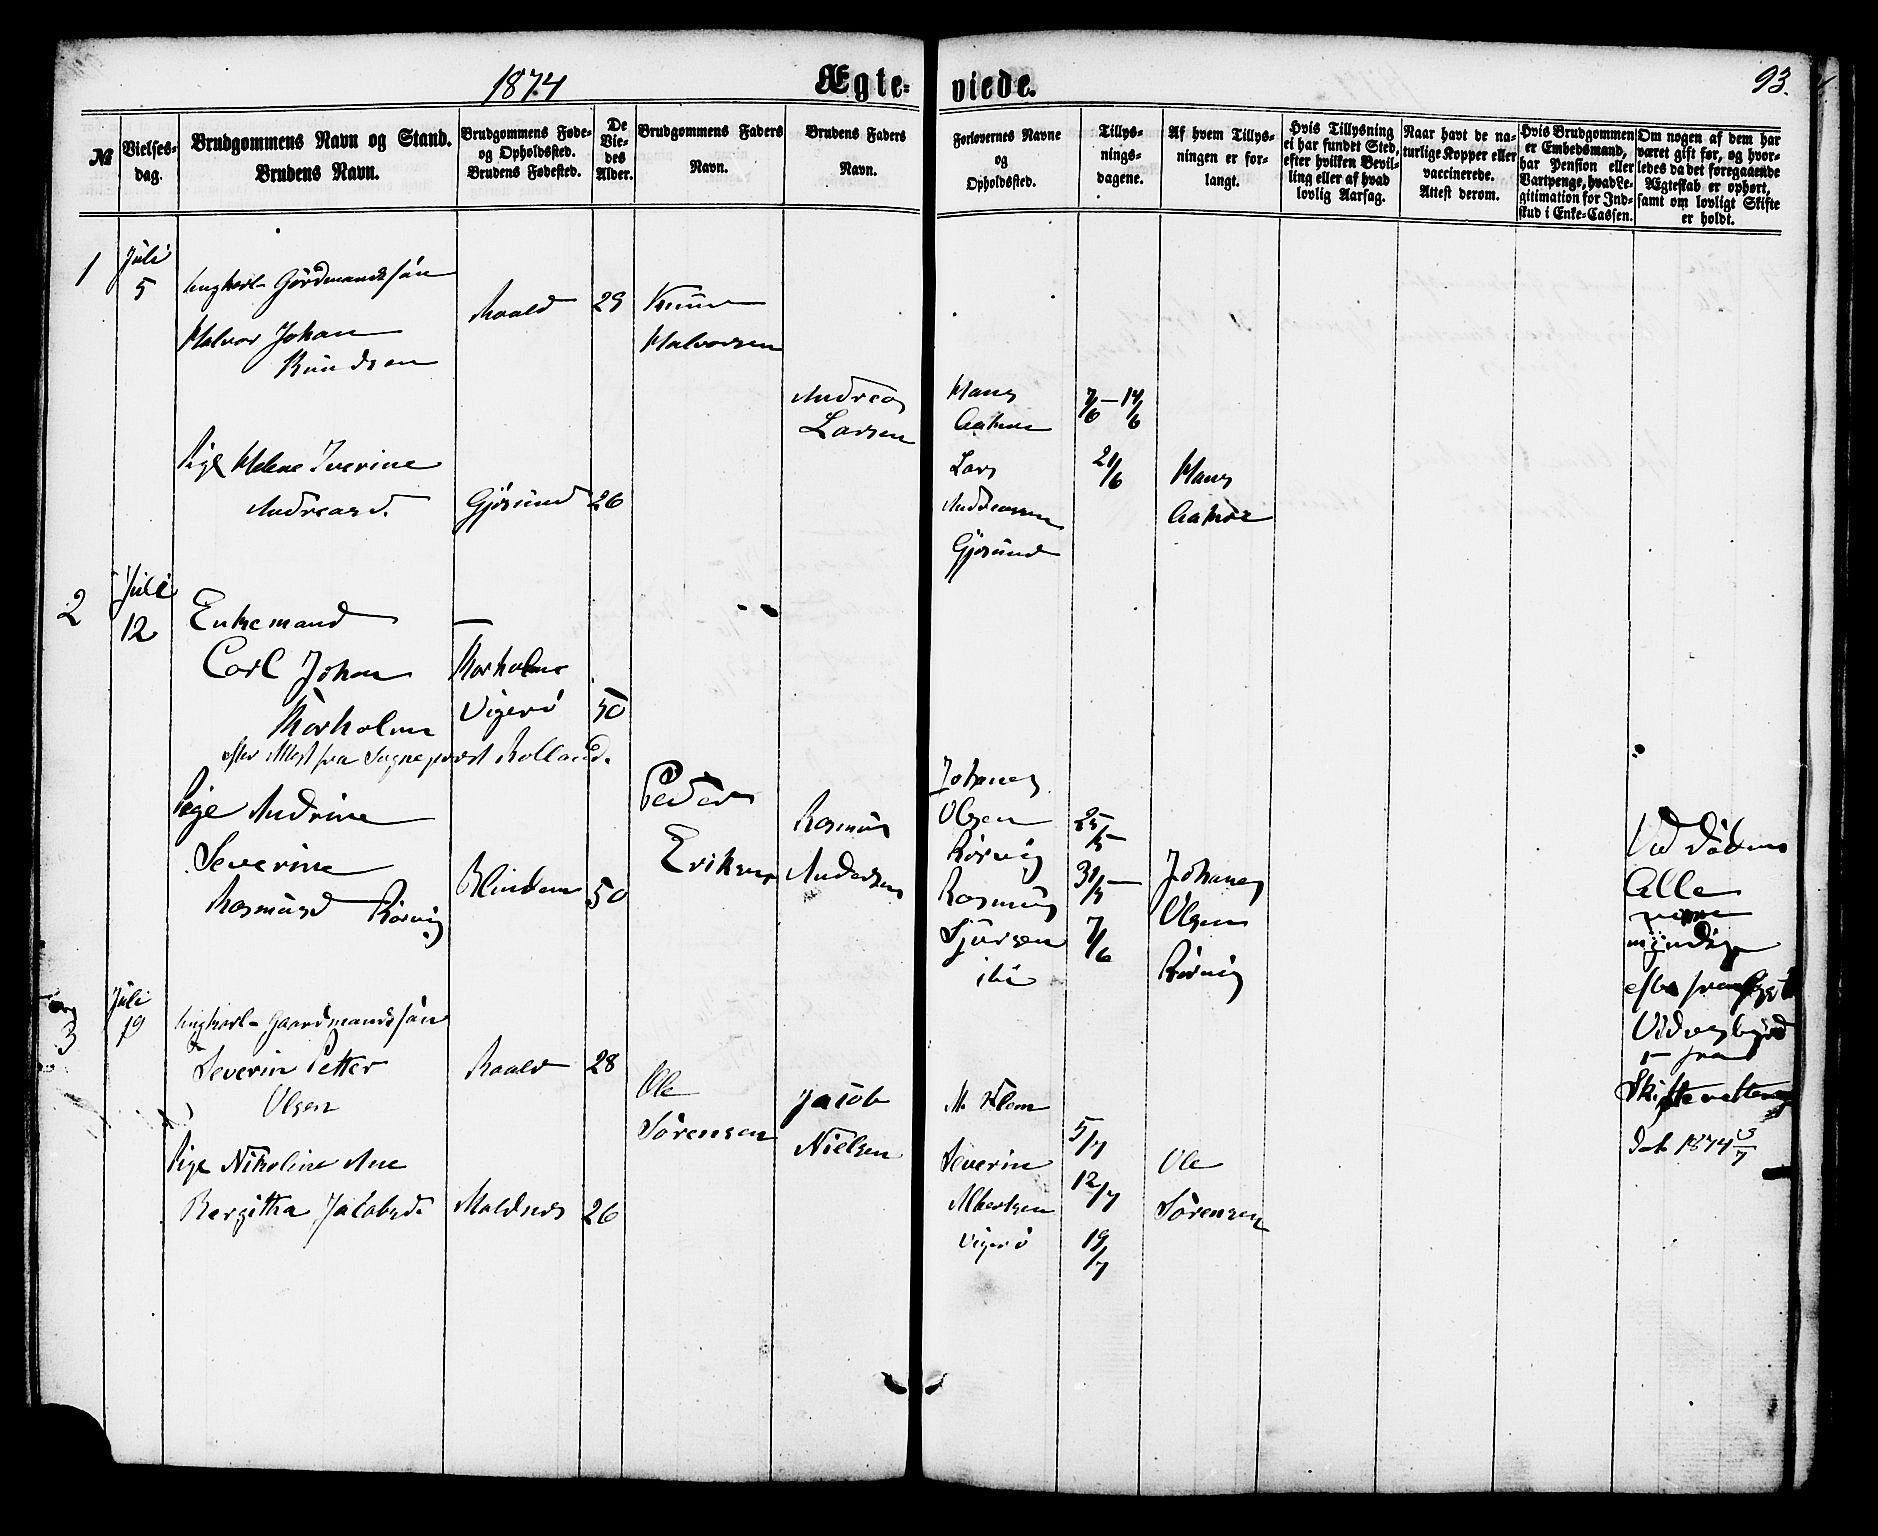 1874
Ægte-
viede.
93.
№
Vielses-
dag.
Brudgommens Navn og Stand.
Brudens Navn.
Brudgommens Føde-
og Opholdssted.
Brudens Fødested.
De
Vie-
des
Alder.
Brudgommens Faders
Navn.
Brudens Faders
Navn.
Forlovernes Navne
og
Opholdssted.
Tillys-
nings-
dagene.
Af hvem Tillys-
ningen er for-
langt.
Hvis Tillysning
ei har fundet Sted,
efter hvilken Bevil-
ling eller af hvad
lovlig Aarsag.
Naar havt de na-
turlige Kopper eller
vaccinerede.
Attest derom.
Hvis Brudgommen
er Embedsmand,
har Pension eller
Vartpenge, hvad Le-
gitimation for Ind-
skud i Enke-Cassen.
Om nogen af dem har
været gift før, og hvor-
ledes da det foregaaende
Ægteskab er ophørt,
samt om lovligt Skifte
er holdt.
1
Juli
5
ungkarl Gårdmandssøn
Halvor Johan
Knudsen
Roald
29
Knud
Halvorsen
Pige Helene Iverine
Andreasd.
Gjøsund
26
Andreas
Larsen
Hans
Aakroe
Lars
Andreassen
Gjøsund
7/6 - 14/6
21/6
Hans
Aakroe
2
Juli
12
Enkemand
Carl Johan
Korsholm
efter Attest fra Sognepræst Rolland.
Korsholm
Vigerø
50
Peder
Eriksen
Pige Andrine
Severine
Rasmusd Rørvig
Blindem
50
Rasmus
Andersen
Johanes
Olsen
Rørvig
Rasmus
Sjursen
ibi
25/5
31/5
7/6
Johanes
Olsen
Rørvig
Ved Døden
Alle
være
myndige
efter
fra
Skifteretten
dat. 1874 3/7
3
Juli
19
ungkarl Gaardmandssøn
Severin Petter
Olsen
Roald
28
Ole
Sørensen
Pige Nikoline Ane
Bergitha Jakobsd.
Moldnes
26
Jacob
Nielsen
M. Klem
Severin
Albertsen
Vigerø
5/7
12/7
19/7
Ole
Sørensen